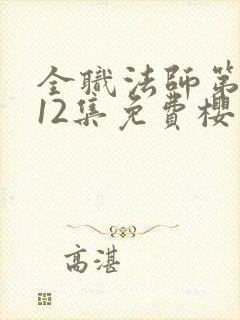 全職法師第
12集免費櫻
高湛